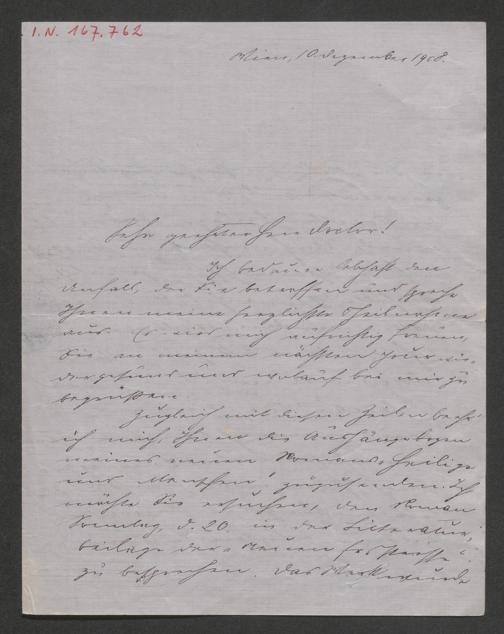 I. N. 167.762
Wien, 10. Dezember 1908.
Sehr geehrter Herr Doctor!
Ich bedaure lebhaft den
Unfall, der Sie betroffen und spreche
Ihnen meine herzlichste Theilnahme
aus. Es wird mich aufrichtig freuen,
Sie an meinem nächsten Jour wie-
der gesund und wolauf bei mir zu
begrüßen.
Zugleich mit diesen Zeilen beehre
ich mich, Ihnen die Aushängebogen
meines neuen Romans „Heilige
und Menschen" zuzusenden. Ich
möchte Sie ersuchen, den Roman
Sonntag, d. 20. in der Litteratur-
beilage der „Neuen Fr. Presse"
zu besprechen. Das Werk wurde